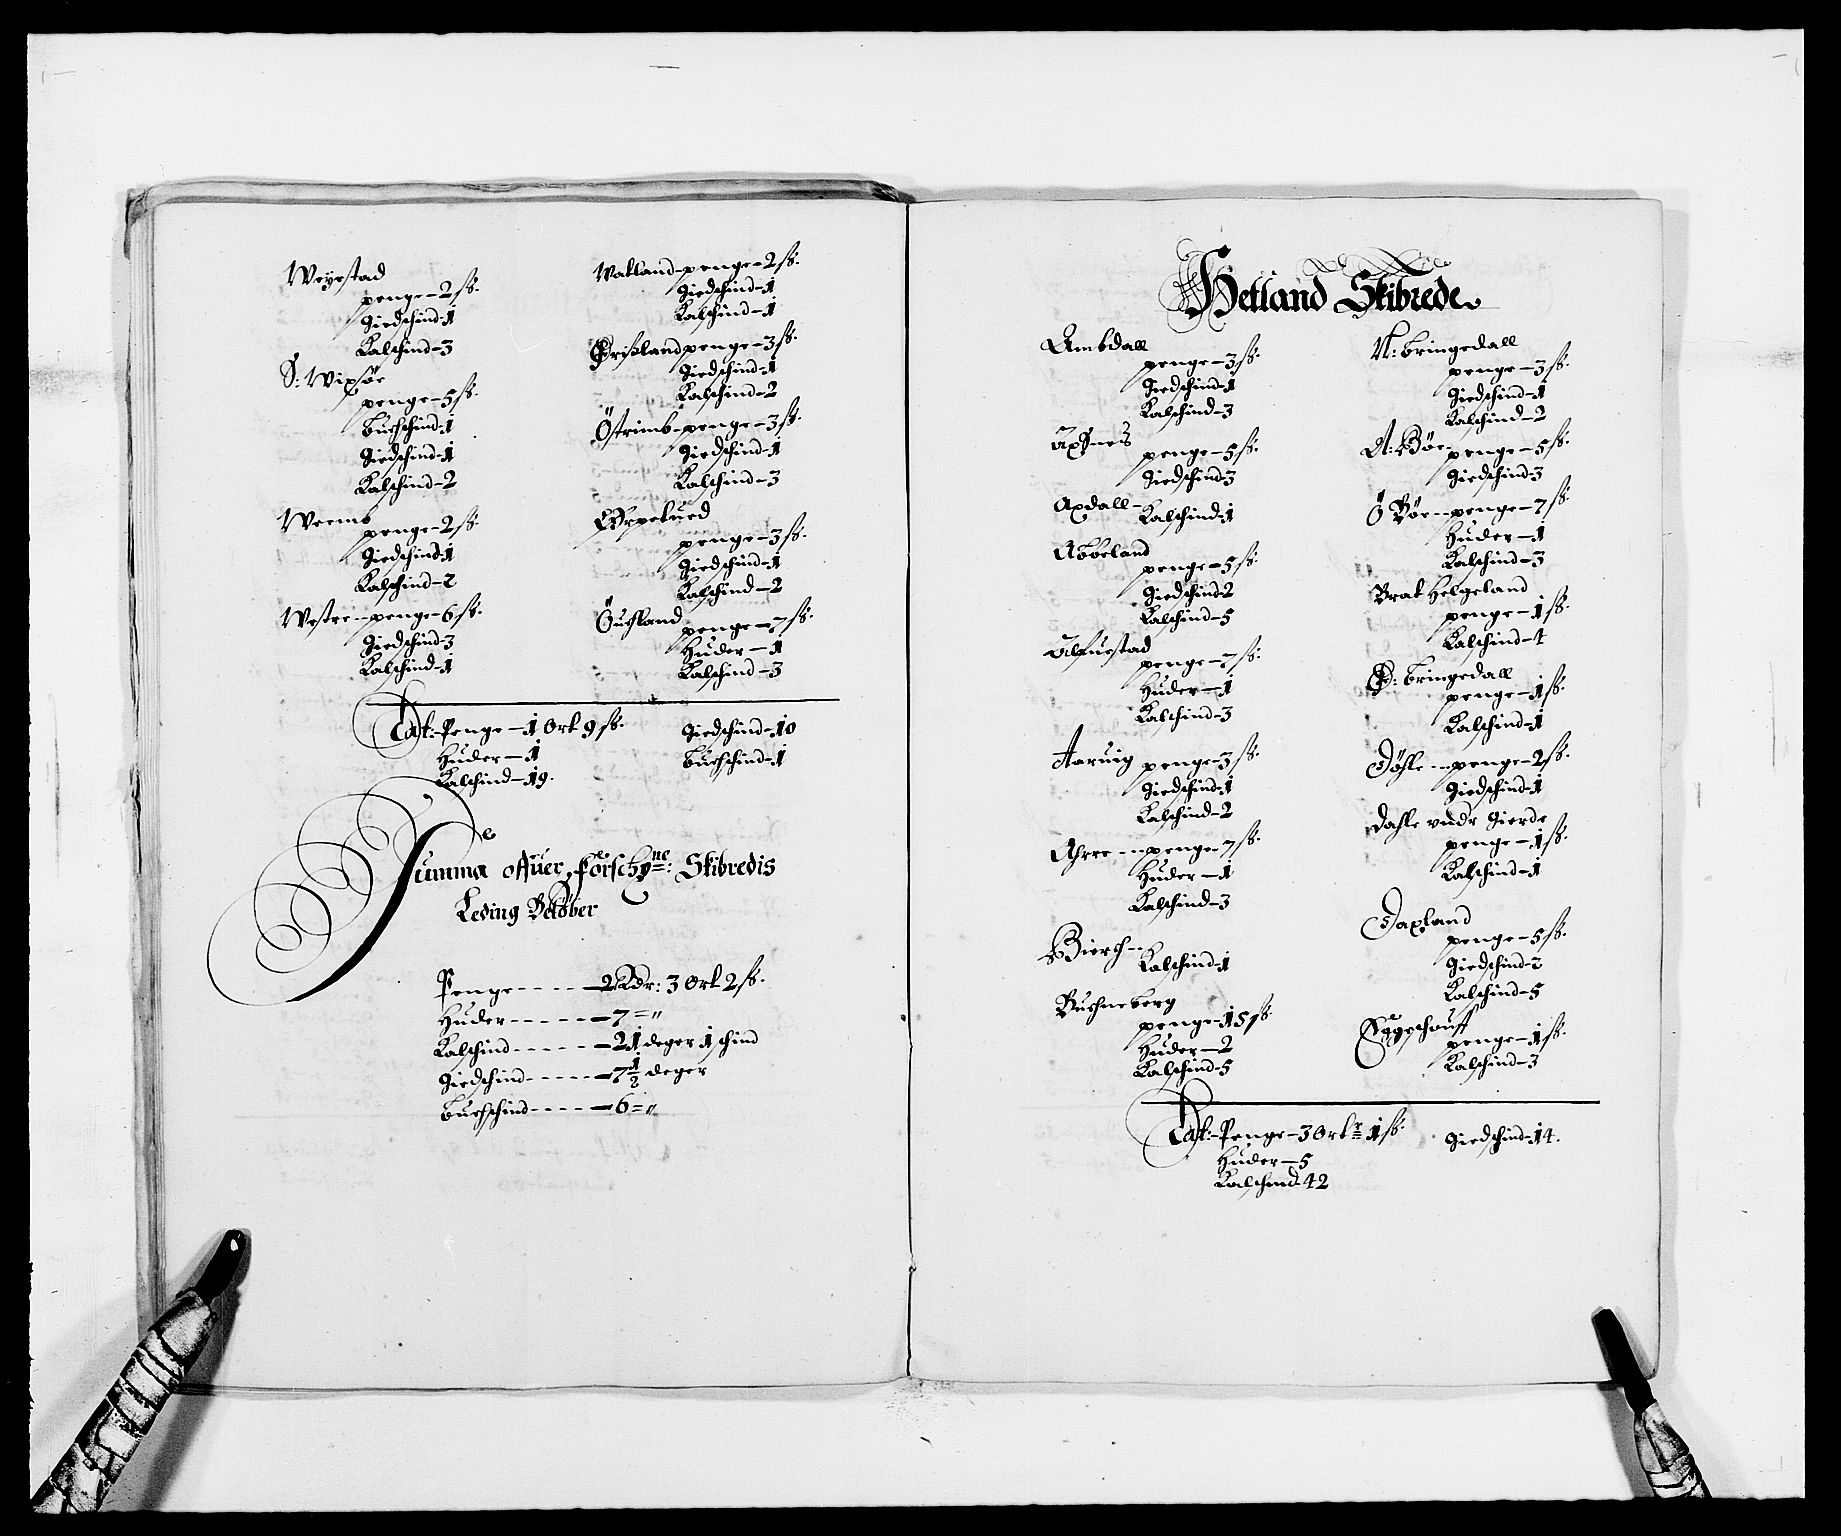 Weyestad
penge - 2 ß.
Giedschind - 1
Kalschind - 3
S: Wixsøe
penge - 5 ß.
buchschind - 1
Giedschind - 1
Kalschind - 2
Weemb
penge - 2 ß.
Giedschind - 1
Kalschind - 2
Westre - - penge - 6 ß.
Giedschind - 3
Kalschind - 1
Watland - penge - 2 ß.
Giedschind - 1
Kalschind - 1
penge - 3 ß.
Giedschind - 1
Kalschind - 2
Östrimb - penge - 3 ß.
Giedschind - 1
Kalschind - 3
penge - 3 ß.
Giedschind - 1
Kalschind - 2
penge - 7 ß.
Huder - 1
Kalschind - 3
Lat: Penge - 1 Ort 9 ß.
Huder - 1
Kalschind - 19.
Giedschind - 10
buchschind - 1
Summa offuer forschne: Skibredis
Leding
Penge - - - - - 2 Rdr: 3 Ort 2 ß.
Huder - - - - - 7 = "
Kalschind - - - - - 21 deger 1 schind
Giedschind - - - - - 7 1/2 deger
buchschind - - - - - 6 = "
Hetland Skibrede
Ambdall
penge - 3 ß.
Giedschind - 1
Kalschind - 3
Axsneß
penge - 5 ß.
Giedschind - 3
Axdall - Kalschind - 1
Abbeland
penge - 5 ß.
Giedschind - 2
Kalschind - 5
Alfuestad
penge - 7 ß.
Huder - 1
Kalschind - 3
Aaruig penge - 3 ß.
Giedschind - 1
Kalschind - 2
Ahree - - - penge - 7 ß.
Huder - 1
Kalschind - 3
Bierch - - Kalschind - 1
Buchneberg
penge - 15 ß.
Huder - 2
Kalschind - 5
N: bringedall
penge - 3 ß.
Giedschind - 1
Kalschind - 2
N: Bøe - penge - 5 ß.
Giedschind - 3
Ö Bøe - - penge - 7 ß.
Huder - 1
Kalschind - 3
Brat Helgeland
penge - 1 ß.
Kalschind - 4
Ø: bringedall
penge - 1 ß.
Kalschind - 1
Døhle - - penge - 2 ß.
Giedschind - 1
Dahle vndr Gierde
penge - 1 ß.
Kalschind - 1
Daxland
penge - 5 ß.
Giedschind - 2
Kalschind - 5
penge - 1 ß.
Kalschind - 3
Lat: Penge - 3 Ortr 1 ß.
Huder - 5
Kalschind - 42
Giedschind - 14.